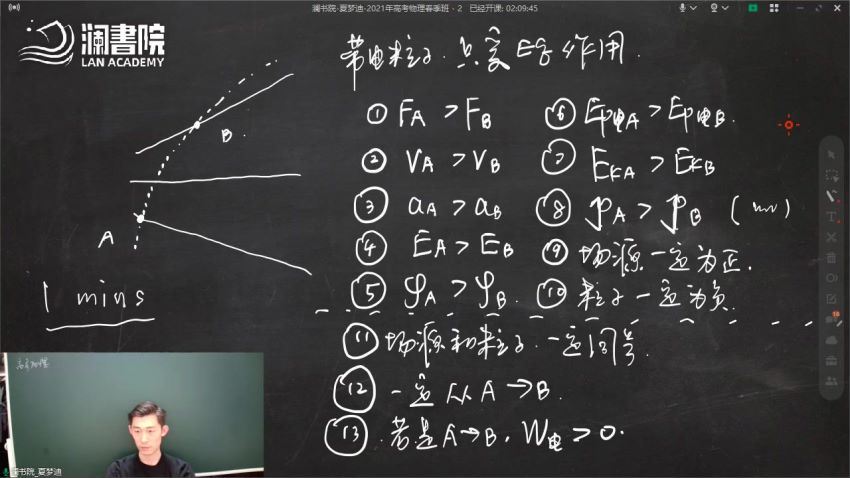 澜书院-夏梦迪-2021年高考物理春季班 - 2 已经开课: 02:09:45
澜書院
LAN ACADEMY
带电粒子.只受E场作用.
① FA > FB
⑥ Ep电A > Ep电B.
② VA > VB
⑦ EKA > EKB
③ aA > aB
⑧ PA > PB (mv)
④ EA > EB
⑨ 场源一定为正.
⑤ φA > φB
⑩ 粒子一定为负.
⑪ 场源和粒子一定同号.
⑫ 一定从A→B.
⑬ 若是A→B, W电 > 0.
B.
A
1 mins
高考物理
澜书院_夏梦迪